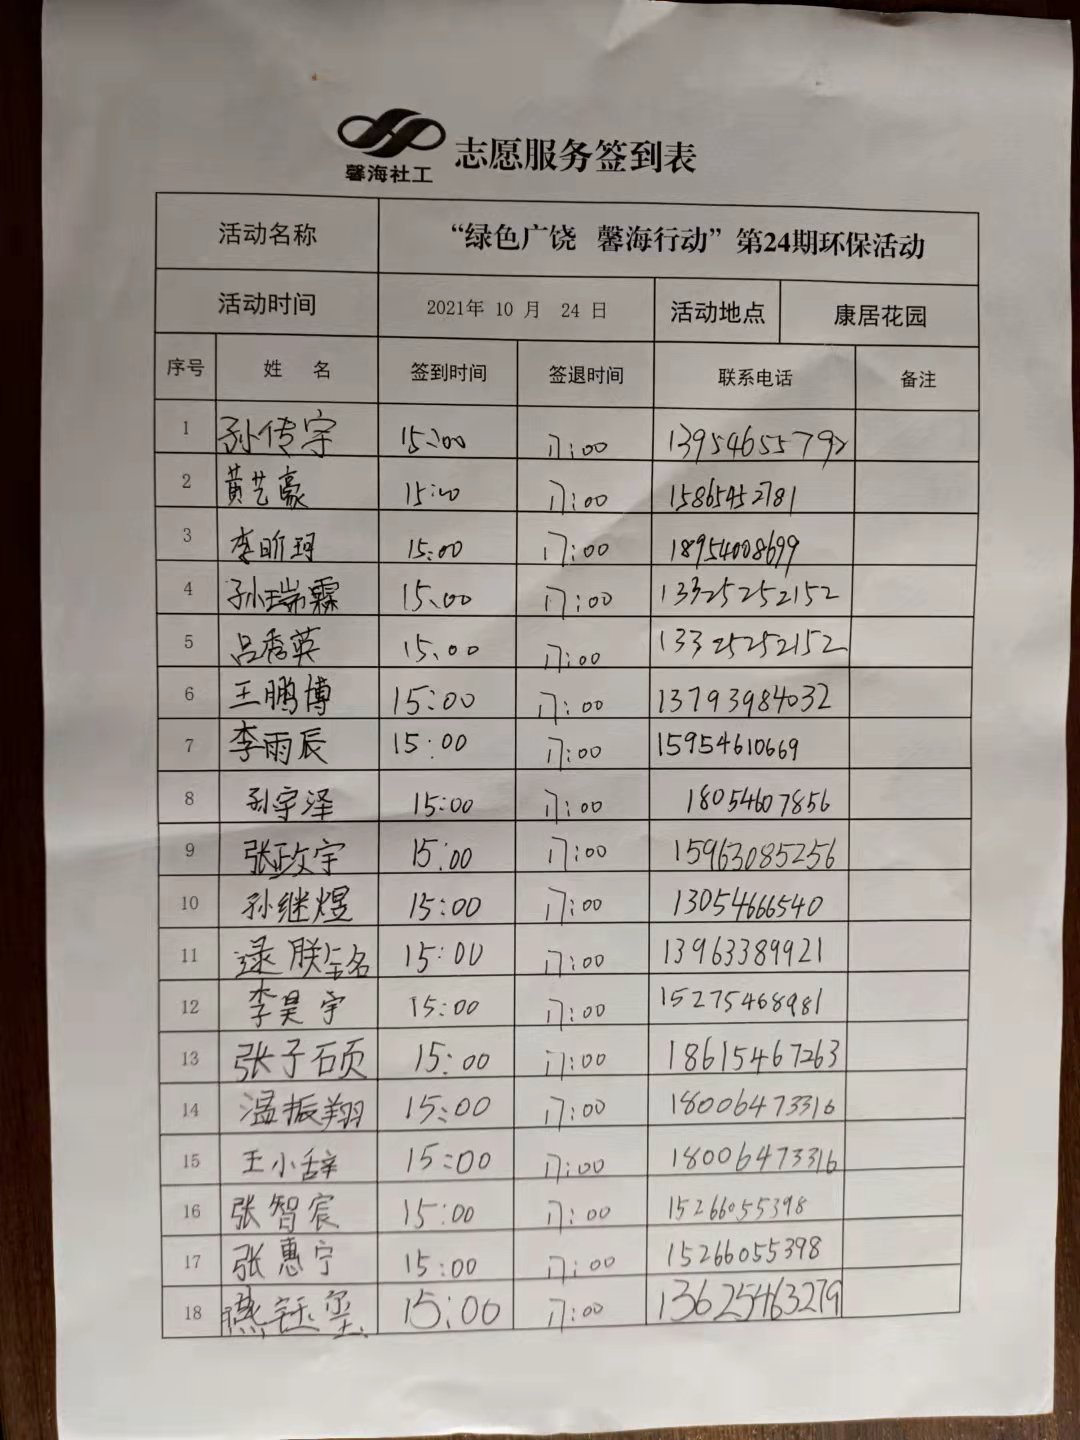 馨海社工 志愿服务签到表
活动名称 “绿色广饶 馨海行动”第24期环保活动
活动时间 2021年 10 月 24 日 活动地点 康居花园
序号 姓 名 签到时间 签退时间 联系电话 备注
1 孙传宇 15:00 17:00 13954655792
2 黄艺豪 15:00 17:00 15865452781
3 李昕珂 15:00 17:00 18954008699
4 孙瑞霖 15:00 17:00 13325252152
5 吕秀英 15:00 17:00 13325252152
6 王鹏博 15:00 17:00 13793984032
7 李雨辰 15:00 17:00 15954610669
8 孙宇泽 15:00 17:00 18054607856
9 张政宇 15:00 17:00 15963085256
10 孙继煜 15:00 17:00 13054666540
11 15:00 17:00 13963389921
12 李昊宇 15:00 17:00 15275468981
13 张子硕 15:00 17:00 18615467263
14 温振翔 15:00 17:00 18006473316
15 王小辞 15:00 17:00 18006473316
16 张智宸 15:00 17:00 15266055398
17 张惠宁 15:00 17:00 15266055398
18 燕钰玺 15:00 17:00 13625463279